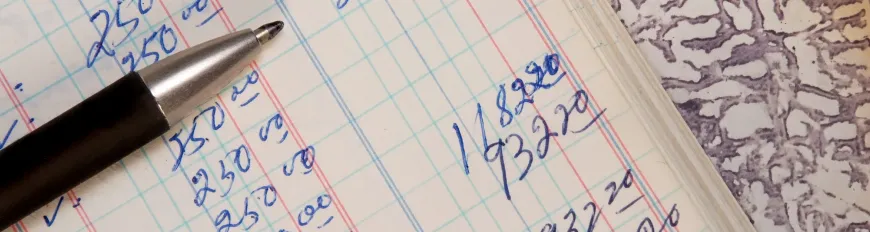 250
250 00
250 00
250 00
250 00
00
11822 20
9322 20
932 20